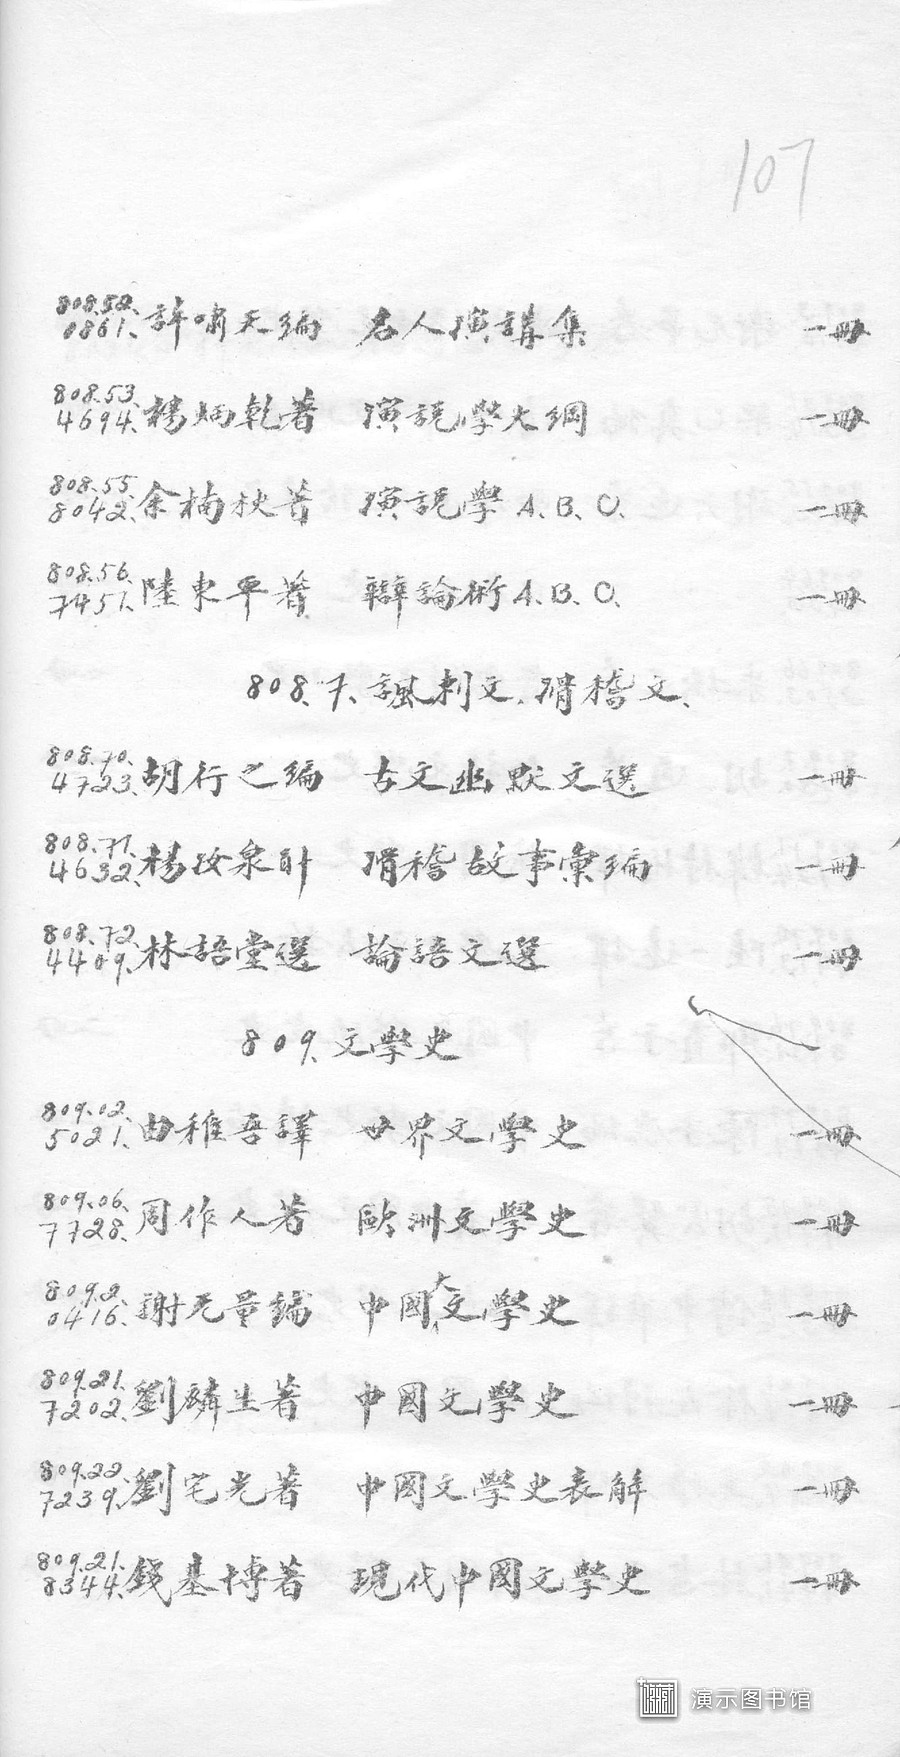 107
808.52. 0861. 許嘯天編 名人演講集 一冊
808.53. 4694. 楊炳乾著 演説學大綱 一冊
808.55. 8042. 余楠秋著 演説學 A.B.C. 一冊
808.56. 7451. 陸東平著 辯論術 A.B.C. 一冊
808.7. 諷刺文.滑稽文.
808.70. 4723. 胡行之編 古文幽默文選 一冊
808.71. 4632. 楊汝泉 滑稽故事彙編 一冊
808.72. 4409. 林語堂選 論語文選 一冊
809. 文學史
809.02. 5021. 由稚吾譯 世界文學史 一冊
809.06. 7728. 周作人著 歐洲文學史 一冊
809.2. 0416. 謝无量編 中國大文學史 一冊
809.21. 7202. 劉麟生著 中國文學史 一冊
809.22. 7239. 劉宅光著 中國文學史表解 一冊
809.21. 8344. 錢基博著 現代中國文學史 一冊
演示图书馆